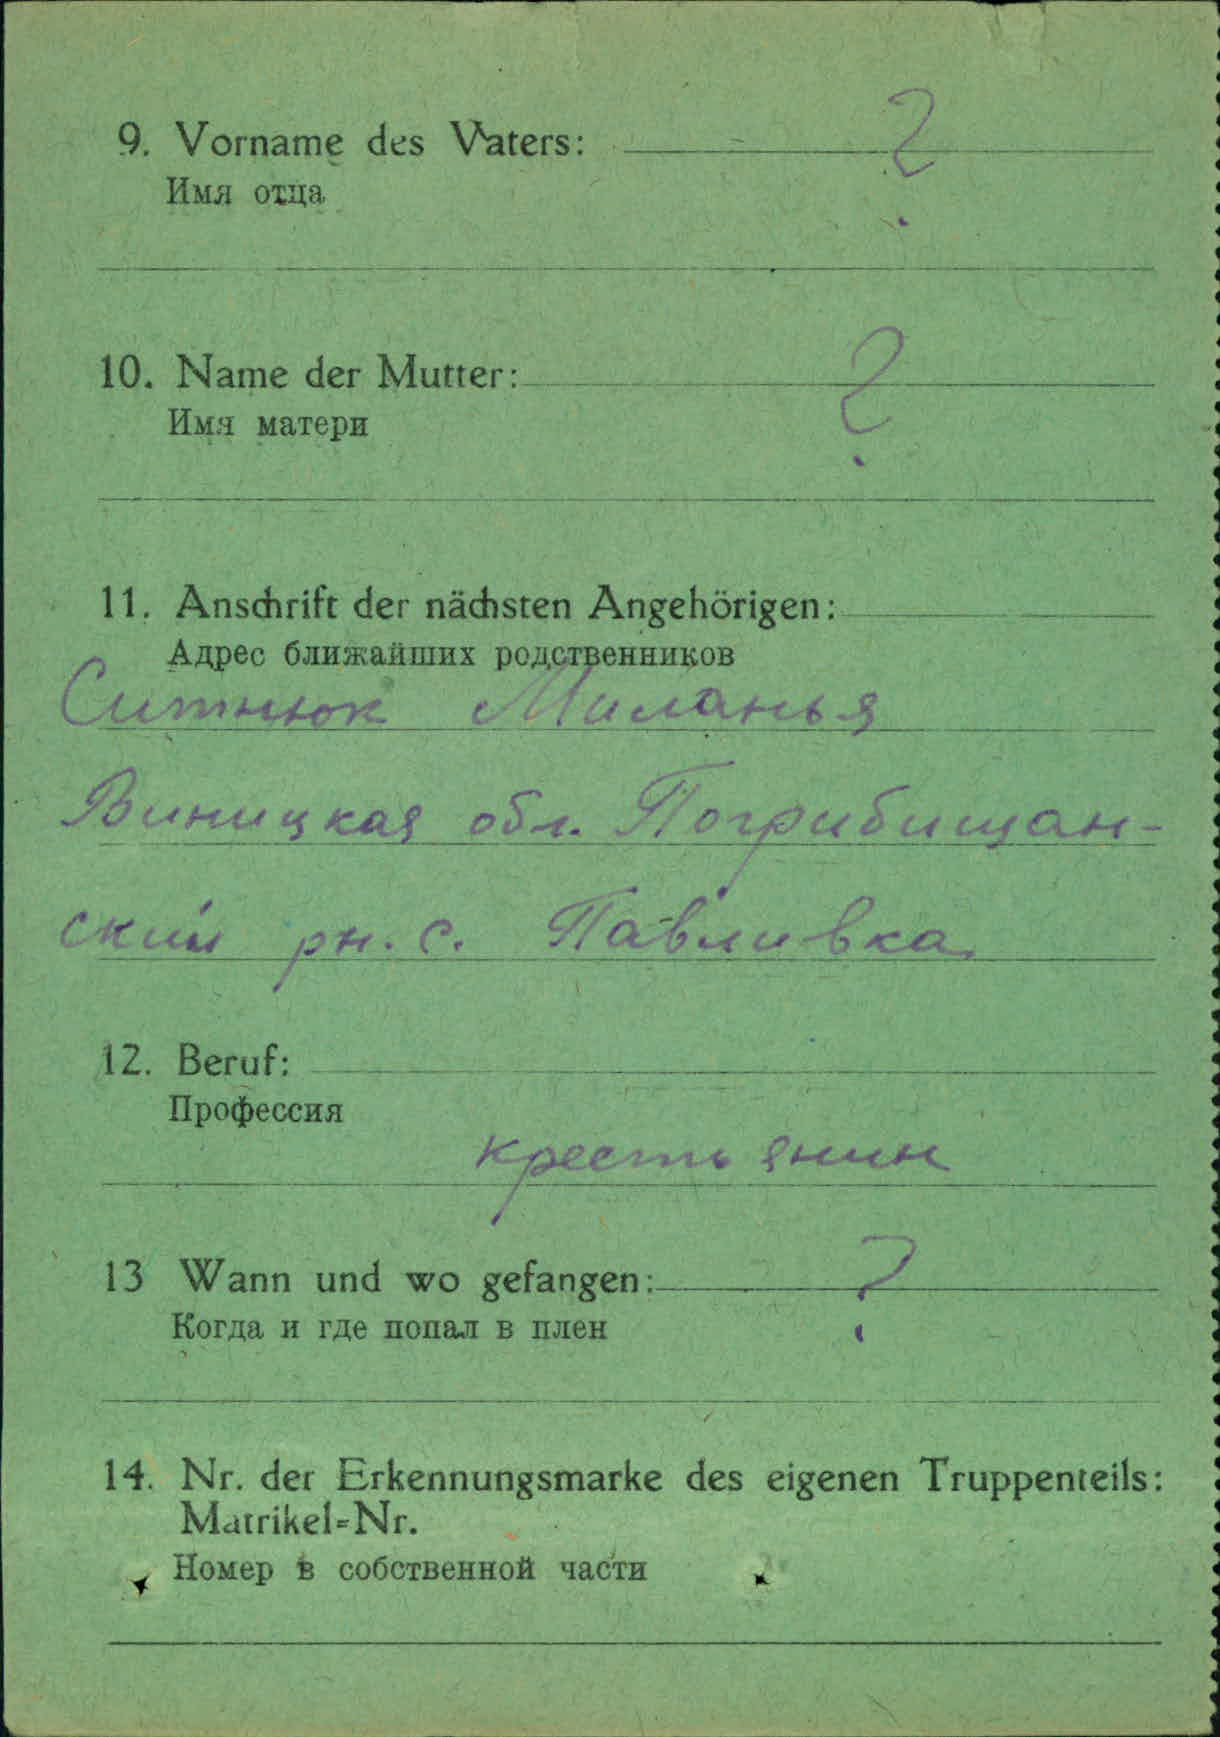 9. Vorname des Vaters: ?
Имя отца
10. Name der Mutter: ?
Имя матери
11. Anschrift der nächsten Angehörigen:
Адрес ближайших родственников
Ситнюк Миланья
Виницкая обл. Погрибищан-
ский рн. с. Павливка
12. Beruf:
Профессия
крестьянин
13 Wann und wo gefangen: ?
Когда и где попал в плен
14. Nr. der Erkennungsmarke des eigenen Truppenteils:
Matrikel=Nr.
Номер в собственной части